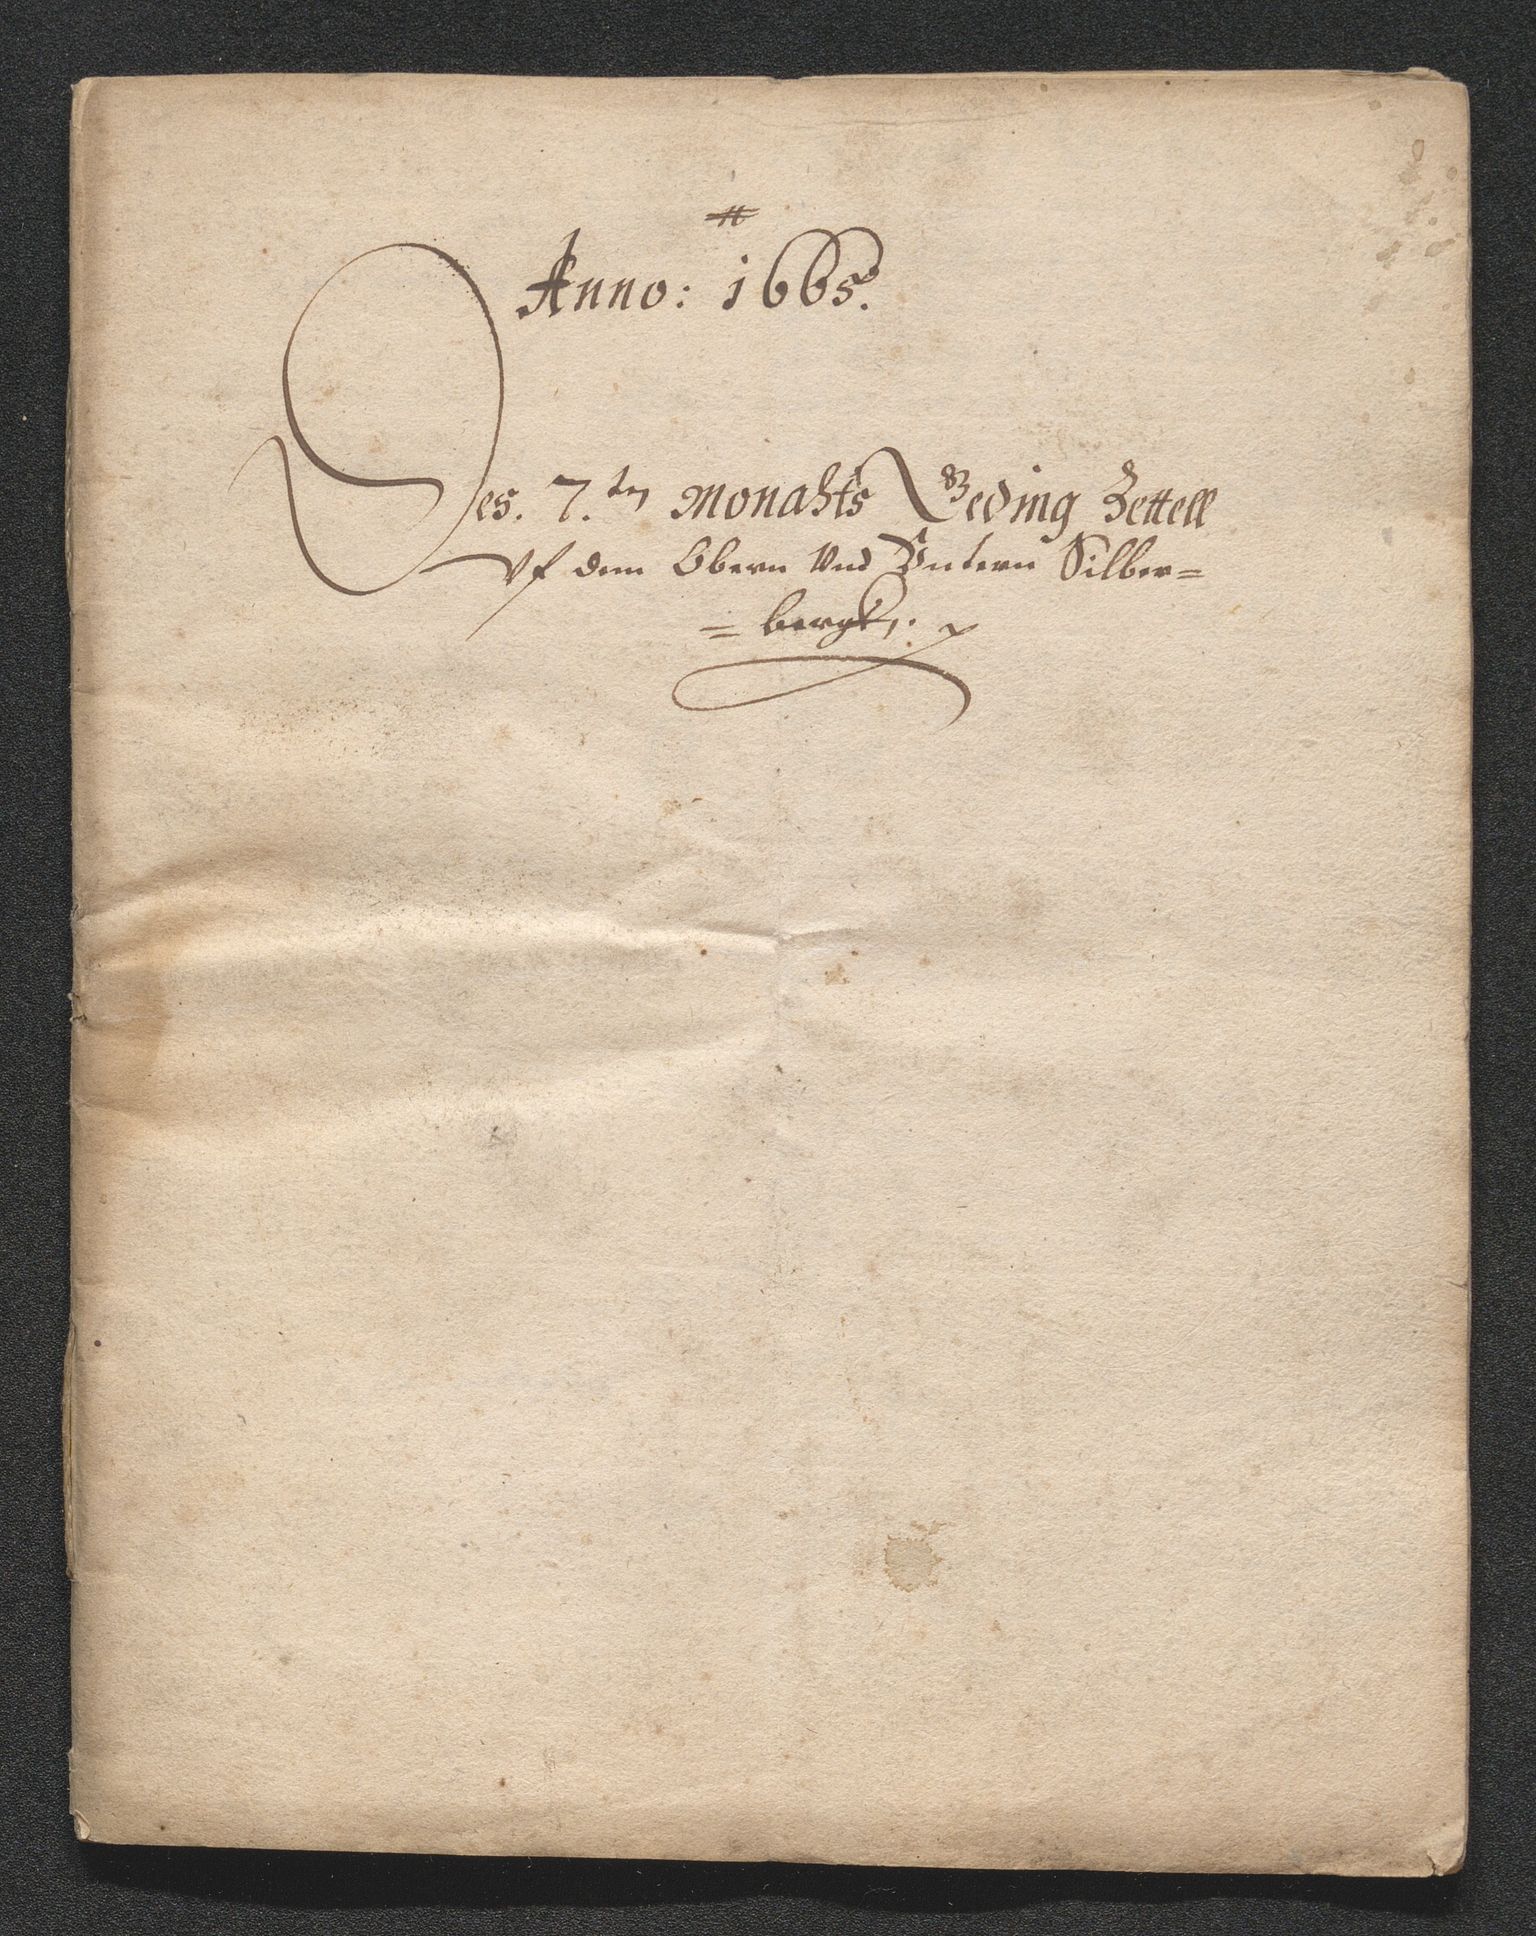 Anno: 1665.
Des. 7.ten Monahts Geding Zettell
Vf dem Obern Und Untern Silber=
= bergk.